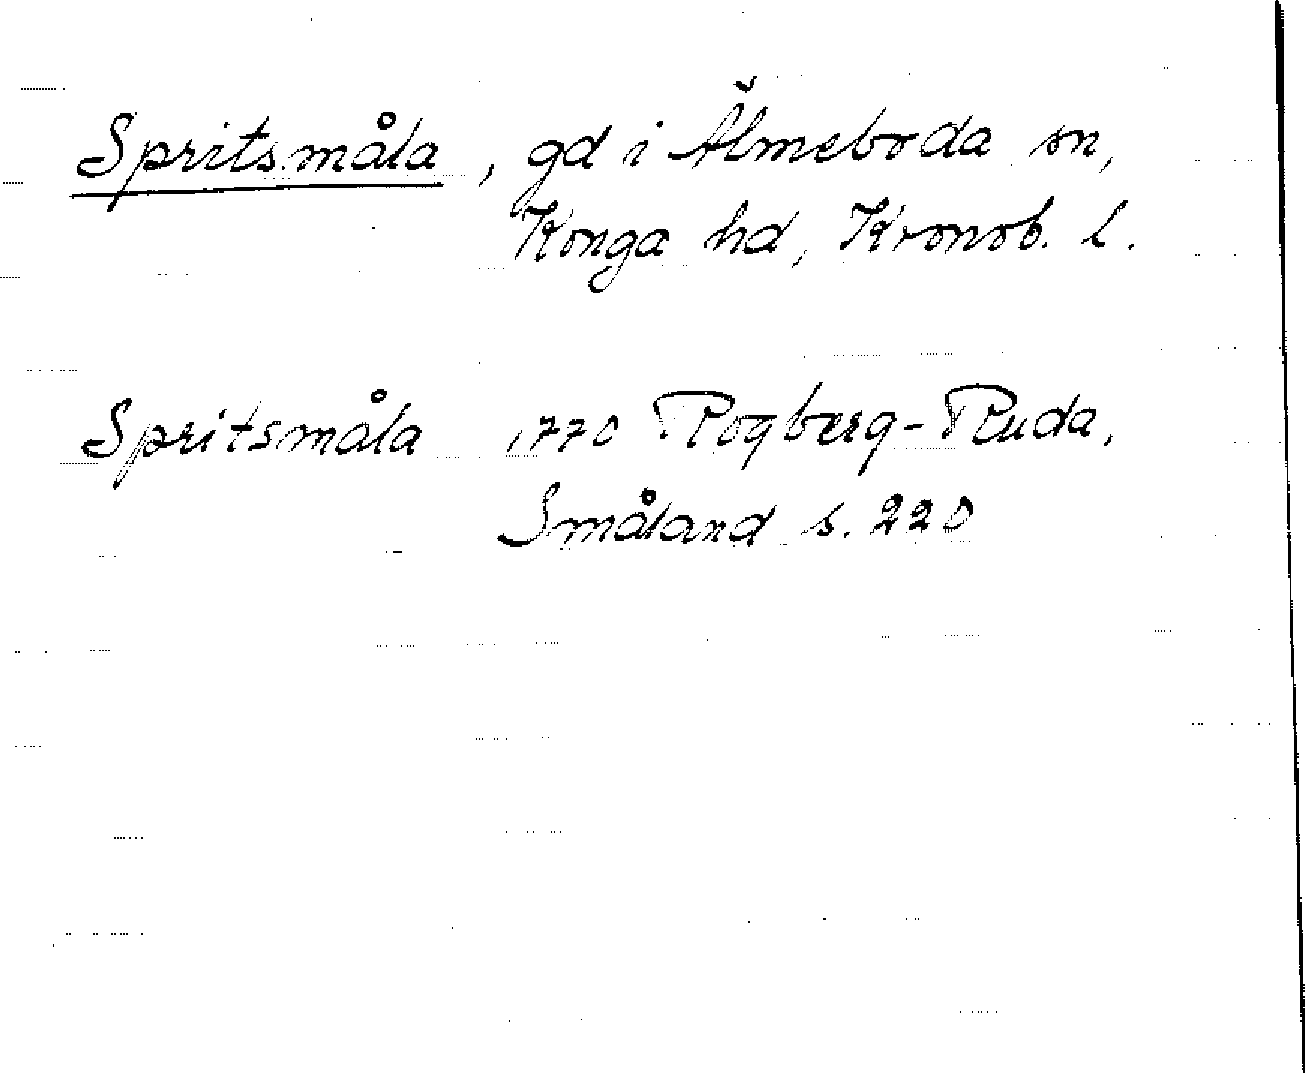 Spritsmåla, gd i Älmeboda sn,
Konga hd, Kronob. l.
Spritsmåla 1770 Rogberg-Ruda,
Småland s. 220